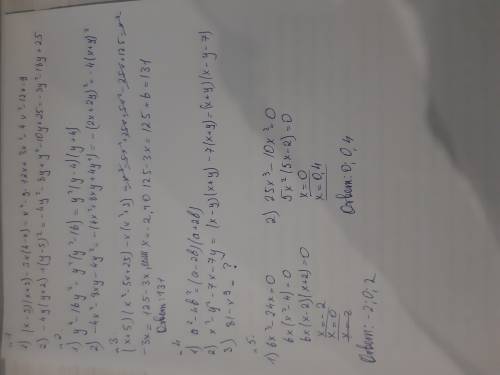 1) (x-3)(x+3)-3x(4-x)=x²-9-12x+3x²=4x²-12x-9
2) -4y(y+2)+(y-5)²=-4y²-8y+y²-10y+25=-3y²-18y+25
=2
1) y⁴-16y²=y²(y²-16)=y²(y-4)(y+4)
2) -4x²-8xy-4y²=-(4x²+8xy+4y²)=-(2x+2y)²=-4(x+y)²
=3
(x+5)(x²-5x+25)-x(x²+3)=x³-5x²+25x+5x²-25x+125-x³
-3x=125-3x, если x=-2, то 125-3x=125+6=131
Ответ: 131
=4
1) a²-4b²=(a-2b)(a+2b)
2) x²-y²-7x-7y=(x-y)(x+y)-7(x+y)=(x+y)(x-y-7)
3) 81-x⁴=?
=5
1) 6x³-24x=0
6x(x²-4)=0
6x(x-2)(x+2)=0
x=-2
x=0
x=2
Ответ: -2; 0; 2
2) 25x³-10x²=0
5x²(5x-2)=0
x=0
x=0,4
Ответ: 0; 0,4